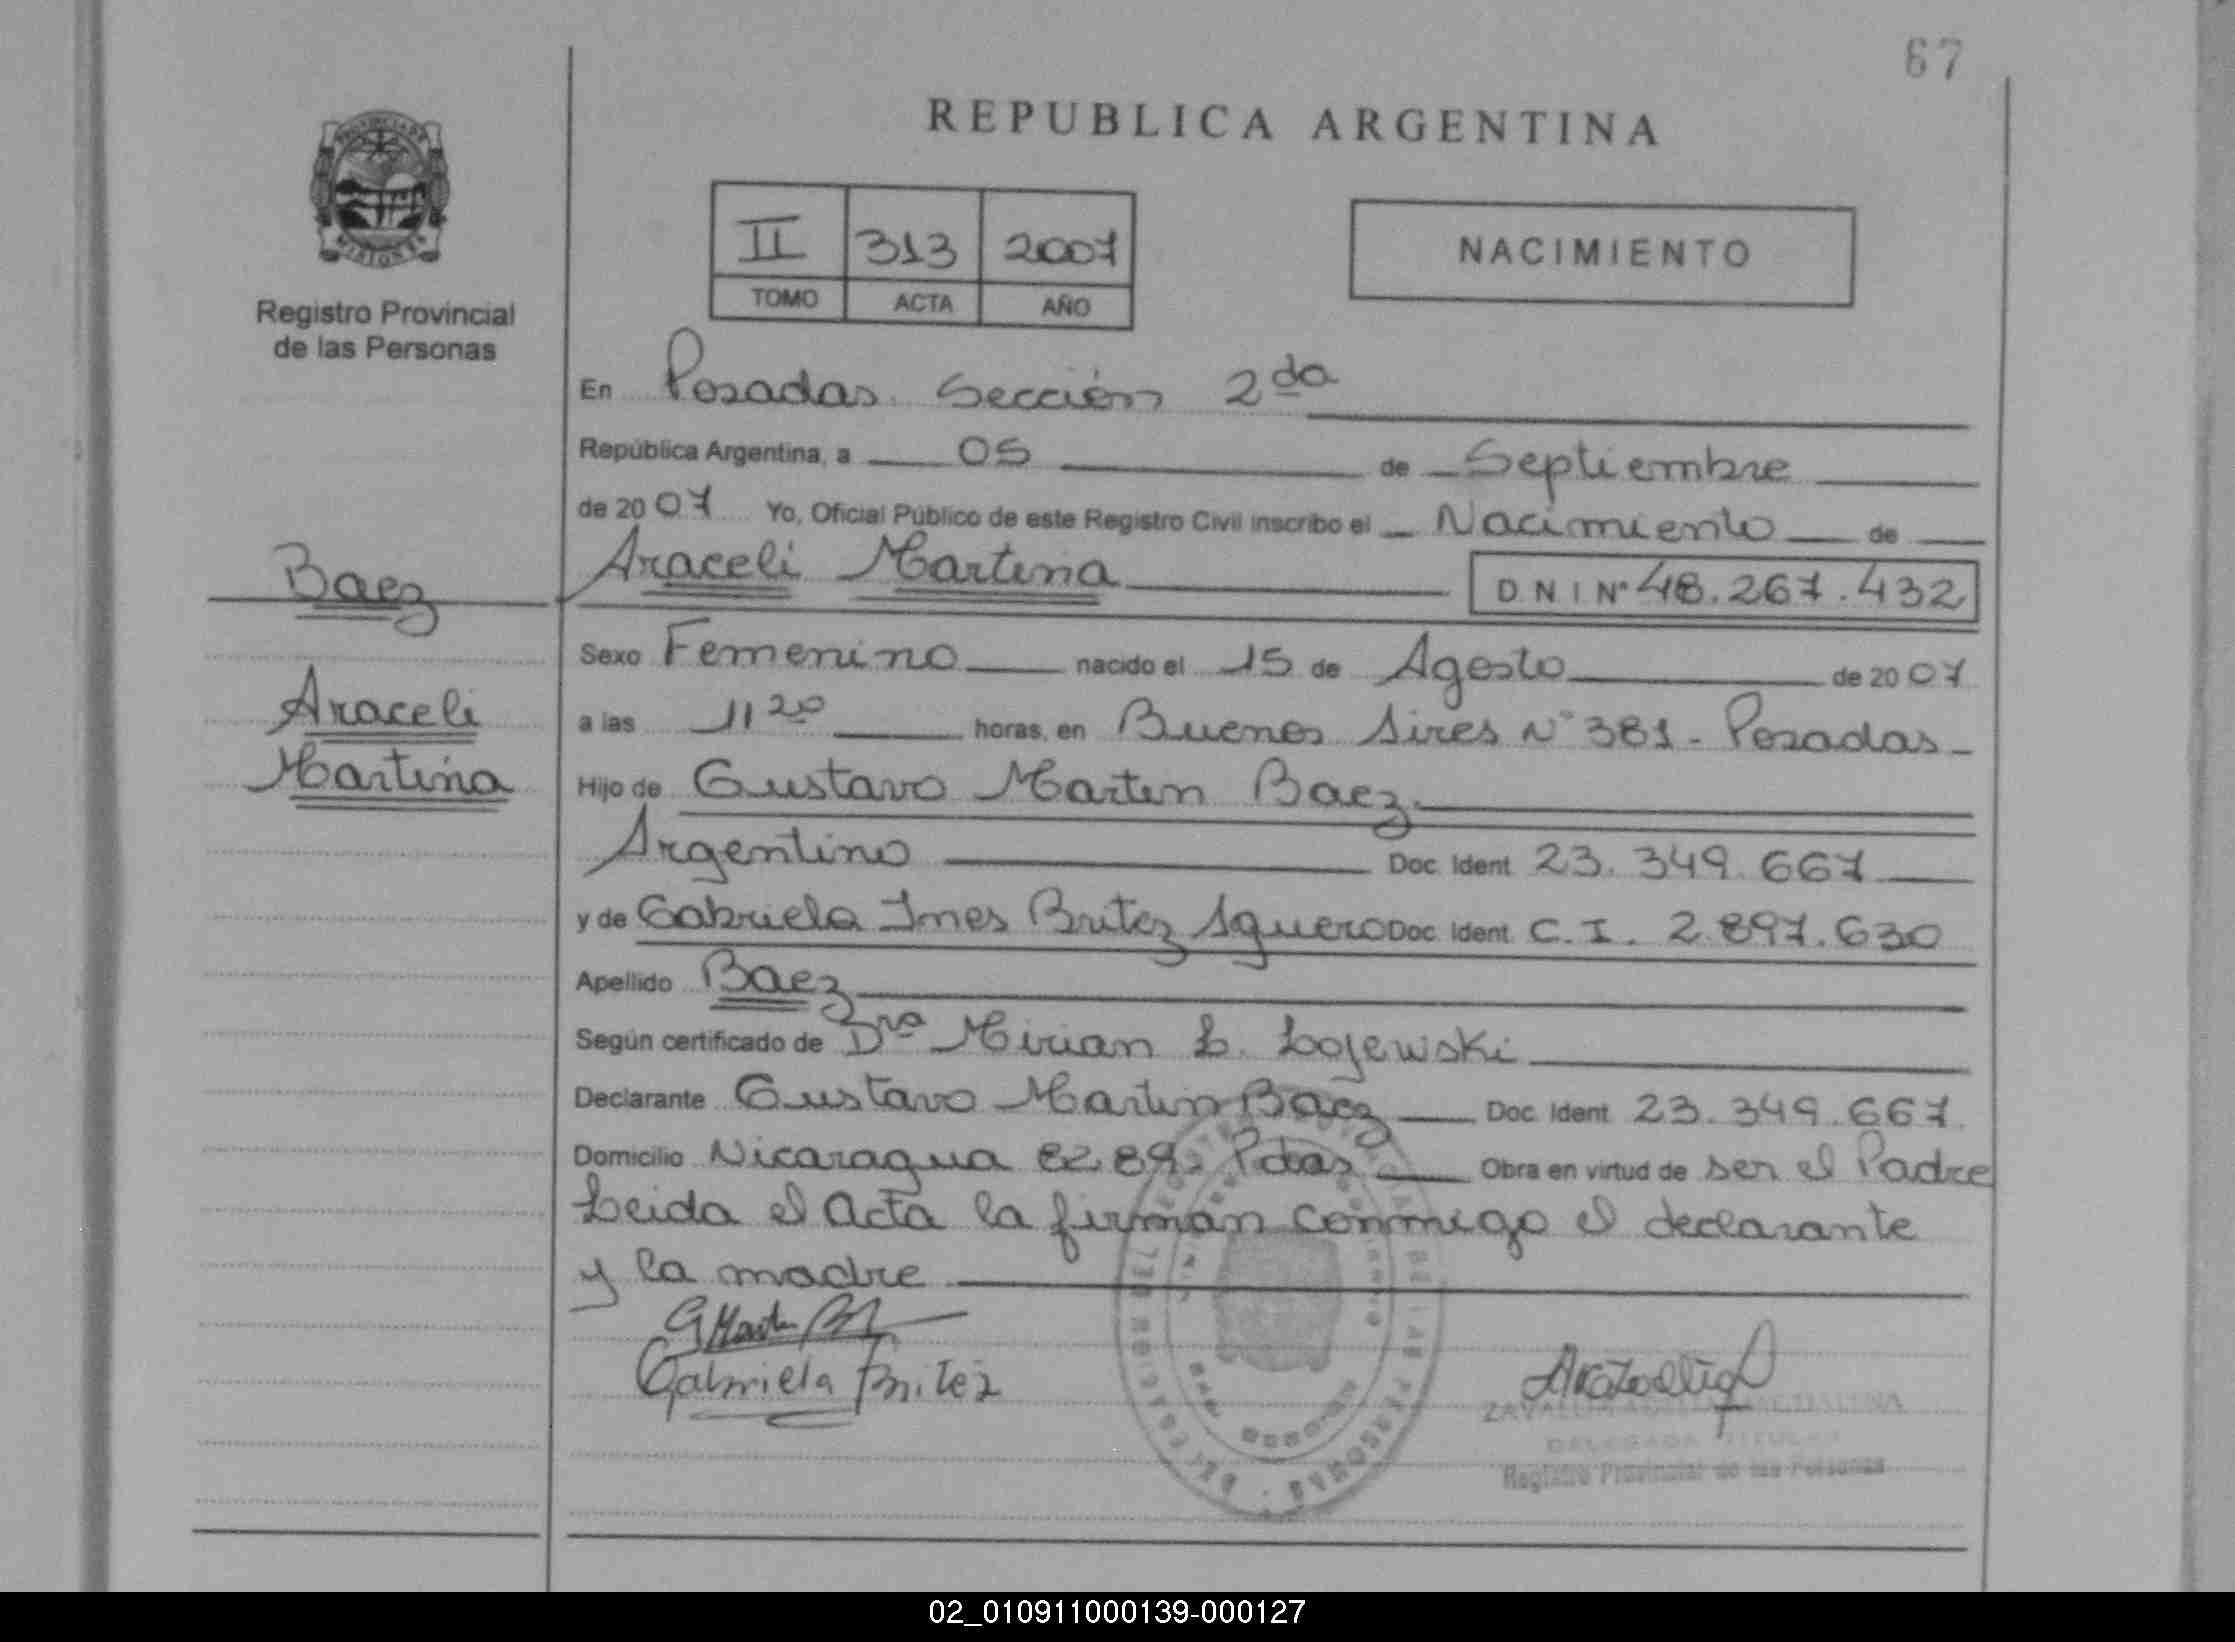 67
REPUBLICA ARGENTINA
PROVINCIA DE
MISIONES
Registro Provincial
de las Personas
II 313 2007
TOMO ACTA AÑO
NACIMIENTO
En Posadas Sección 2da
República Argentina, a 05 de Septiembre
de 2007 Yo, Oficial Público de este Registro Civil inscribo el Nacimiento de
Baez
Araceli Martina DNI Nº 48.267.432
Sexo Femenino nacido el 15 de Agosto de 2007
Araceli
a las 11 20 horas, en Buenos Aires Nº 381 - Posadas
Martina
Hijo de Gustavo Martin Baez
Argentino Doc. Ident. 23.349.667
y de Gabriela Ines Britez Aguero Doc. Ident. C.I. 2.897.630
Apellido Baez
Según certificado de Dra Mirian L. Lojewski
Declarante Gustavo Martin Baez Doc. Ident. 23.349.667
Domicilio Nicaragua 8289 Pdas Obra en virtud de ser el Padre
Leida el acta la firman conmigo el declarante
y la madre
Gabriela Britez
MAGDALENA
DELEGADA TITULAR
Registro Provincial de las Personas
02_010911000139-000127